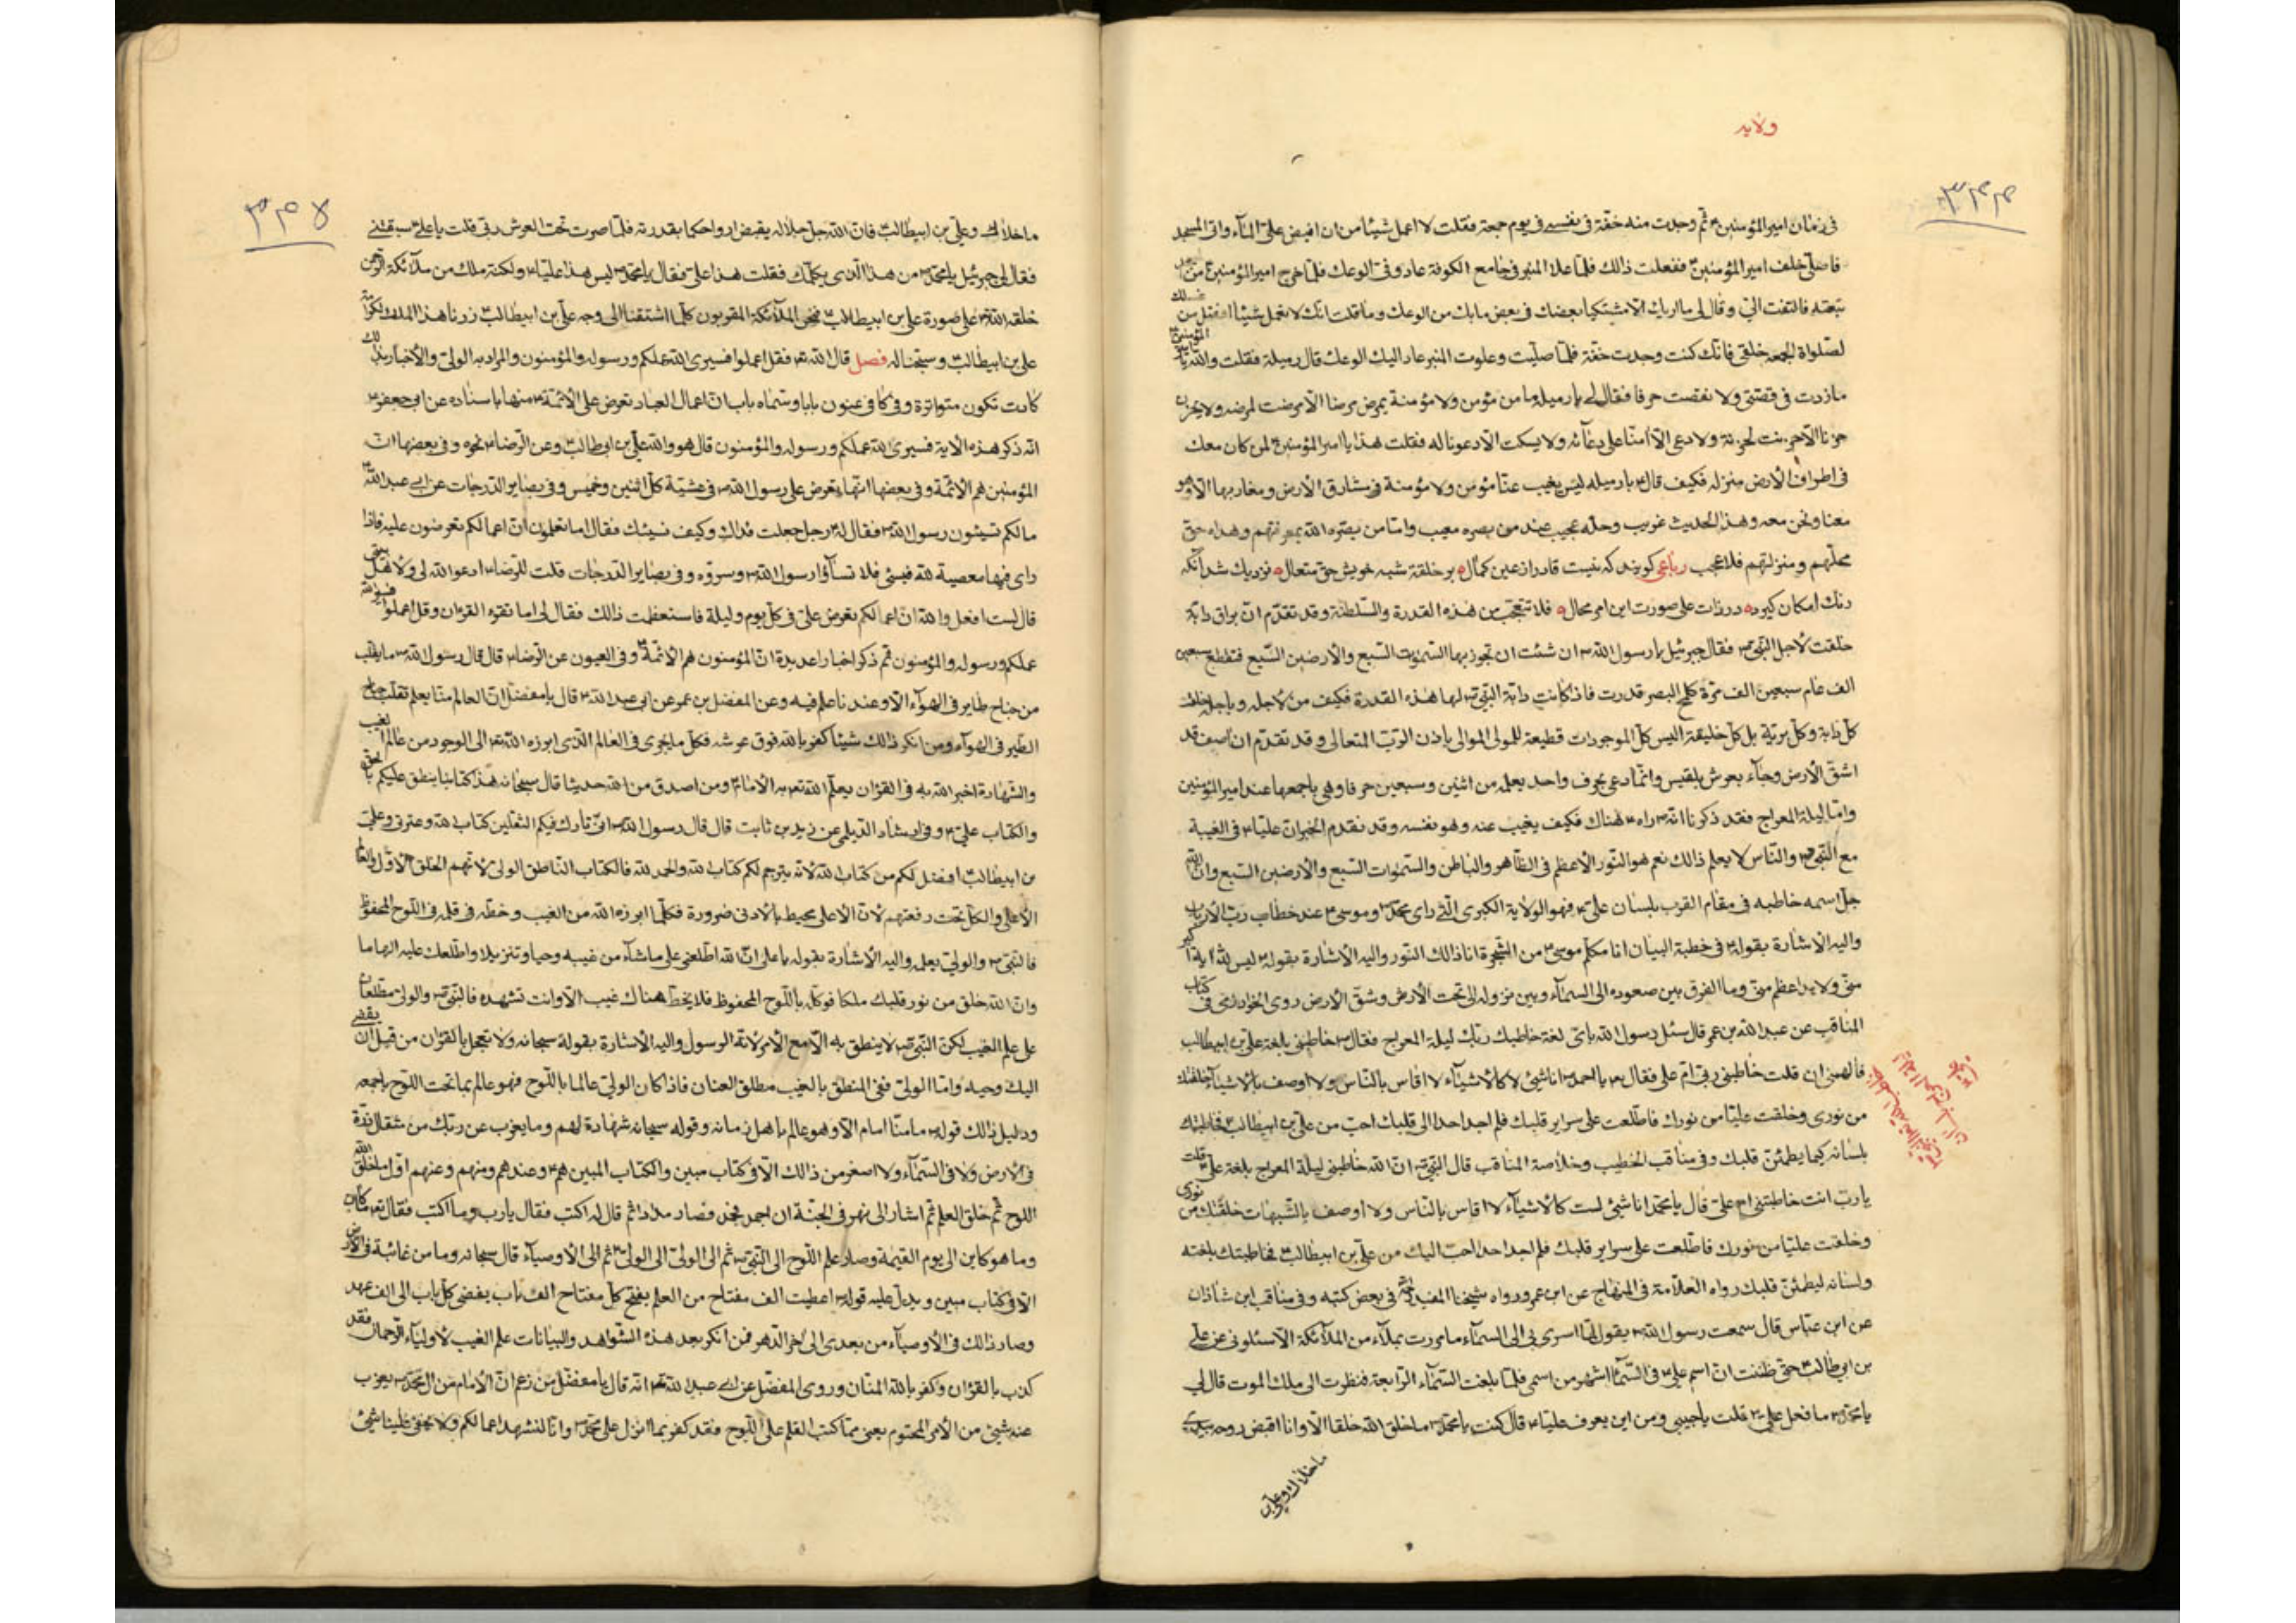 ولايد
٣٤٤
فى زمان امير المؤمنين ثم وجدت منه خفة فى نفسى فى يوم جمعة فقلت لا اعمل شيئا من ان افيض على الماء واتى المسجد
فاصلى خلف امير المؤمنين ففعلت ذالك فلما علا المنبر فى جامع الكوفة عاودنى الوعك فلما خرج امير المؤمنين من
تبعته فالتفت الى وقال لى ما اريك الا مشتكيا بعضك فى بعض مابك من الوعك وما قلت انك لا تعمل شيئا افضل من غسلك
لصلواة الجمعه خلفى فانك كنت وجدت خفة فلما صليت وعلوت المنبر عاد اليك الوعك قال رميلة فقلت والله يا امير المؤمنين
مازدت فى قصتى ولا نقصت حرفا فقال لى يا رميله ما من مؤمن ولا مؤمنة يمرض مرضا الا مرضت لمرضه ولا يحزن
حزنا الا حزنت لحزنه ولا دعى الا امنا على دعائه ولا يسكت الا دعونا له فقلت هذا يا امير المؤمنين لمن كان معك
فى اطراف الأرض منزله فكيف قال يا رميله ليس يغيب عنا مؤمن ولا مؤمنة فى مشارق الأرض ومغاربها الا وهو
معنا ونحن معه وهذا الحديث غريب وحله عجيب عند من بصره معيب واما من بصره الله بمعرفتهم وهداه حق
محلهم ومنزلتهم فلا عجب رباعى كويند كه نيست قادر از عين كمال بر خلقة شبه خويش حق متعال نزديك شد آنكه
رنك امكان كيرد در ذات على صورت اين امر محال فلا تتعجب من هذه القدرة والسلطنة وقد تقدم ان براق دابة
خلقت لأجل النبى فقال جبرئيل يا رسول الله ان شئت ان تجوز بها السموات السبع والأرضين السبع فتقطع سبعين
الف عام سبعين الف مرة كلمح البصر قدرت فاذا كانت دابة النبى لها هذه القدرة فكيف من لأجله وباجله خلقت
كل دابة وكل برية بل كل خليقة اليس كل الموجودات قطيعة للمولى الموالى باذن الرب المتعالى وقد تقدم ان اصف قد
اشق الأرض وجاء بعرش بلقيس وانما دعى بحرف واحد يعلمه من اثنين وسبعين حرفا وهى باجمعها عند امير المؤمنين
واما ليلة المعراج فقد ذكرنا انه راه هناك فكيف يغيب عنه وهو نفسه وقد تقدم الخبر ان عليا فى الغيبة
مع النبى والناس لا يعلم ذالك نعم هو النور الأعظم فى الظاهر والباطن والسموات السبع والأرضين السبع وان الله
جل اسمه خاطبه فى مقام القرب بلسان على فهو الولاية الكبرى التى راى محمد وموسى عند خطاب رب الأرباب
واليه الاشارة بقوله فى خطبة البيان انا مكلم موسى من الشجرة انا ذالك النور واليه الأشارة بقوله ليس لله اية اكبر
منى ولايد اعظم منى وما الفرق بين صعوده الى السماء وبين نزوله الى تحت الأرض وشق الأرض روى الخوارزمى فى كتاب
المناقب عن عبد الله بن عمر قال سئل رسول الله باى لغة خاطبك ربك ليلة المعراج فقال خاطبنى بلغة على بن ابيطالب
فالهمنى ان قلت خاطبنى ربى ام على فقال يا احمد انا شيئ لا كالأشياء لا اقاس بالناس ولا اوصف بالأشياء خلقتك
من نورى وخلقت عليا من نورك فاطلعت على سراير قلبك فلم اجد احدا الى قلبك احب من على بن ابيطالب فخاطبتك
بلسانه كيما يطمئن قلبك وفى مناقب الخطيب وخلاصة المناقب قال النبى ان الله خاطبنى ليلة المعراج بلغة على قلت
يا رب انت خاطبتنى ام على قال يا محمد انا شيئ لست كالأشياء لا اقاس بالناس ولا اوصف بالشبهات خلقتك من نورى
وخلقت عليا من نورك فاطلعت على سراير قلبك فلم اجد احدا احب اليك من على بن ابيطالب فخاطبتك بلغته
ولسانه ليطمئن قلبك رواه العلامة فى المنهاج عن ابن عمر ورواه شيخنا المفيد فى بعض كتبه وفى مناقب ابن شاذان
عن ابن عباس قال سمعت رسول الله يقول لما اسرى بى الى السماء ما مررت بملاء من الملائكة الا سئلونى عن على
بن ابيطالب حتى ظننت ان اسم على فى السماء اشهر من اسمى فلما بلغت السماء الرابعة فنظرت الى ملك الموت قال لى
يا محمد ما فعل على قلت يا حبيبى ومن اين يعرف عليا قال كنت يا محمد ما خلق الله خلقا الا وانا اقبض روحه بيدى
ما خلاك وعلى بن
٣٤٥
ما خلاك وعلى بن ابيطالب فان الله جل جلاله يقبض ارواحكما بقدرته فلما صرت تحت العرش ربى قلت يا على سبقتنى
فقال لى جبرئيل يا محمد من هذا الذى يكلمك فقلت هذا على فقال يا محمد ليس هذا عليا ولكنه ملك من ملائكة الرحمن
خلقه الله على صورة على بن ابيطالب فنحن الملائكة المقربون كلما اشتقنا الى وجه على بن ابيطالب زرنا هذا الملك لكرامة
على بن ابيطالب وسبحنا له فصل قال الله فقل اعملوا فسيرى الله عملكم ورسوله والمؤمنون والمراد به الولى والأخبار بذلك
كادت تكون متواترة وفى كافى عنون بابا وسماه باب ان اعمال العباد تعرض على الأئمة منها باسناده عن ابى جعفر
انه ذكر هذه الاية فسيرى الله عملكم ورسوله والمؤمنون قال هو والله على بن ابى طالب وعن الرضا نحوه وفى بعضها ان
المؤمنين هم الائمة وفى بعضها انها تعرض على رسول الله فى عشية كل اثنين وخميس وفى بصاير الدرجات عن ابى عبد الله
مالكم تسيئون رسول الله فقال له رجل جعلت فداك وكيف نسيئك فقال اما تعلمون ان اعمالكم تعرضون عليه فاذا
راى فيها معصية لله فيسئ فلا تساؤا رسول الله وسروه وفى بصاير الدرجات قلت للرضا ادعوا الله لى ولأهل بيتى
قال لست افعل والله ان اعمالكم تعرض على فى كل يوم وليلة فاستعظمت ذالك فقال لى اما تقرء القران وقل اعملوا فسيرى الله
عملكم ورسوله والمؤمنون ثم ذكر اخبارا عديدة ان المؤمنون هم الأئمة وفى العيون عن الرضا قال قال رسول الله ما يقلب
من جناح طاير فى الهواء الا وعندنا علم فيه وعن المفضل بن عمر عن ابى عبد الله قال يا مفضل ان العالم منا يعلم تقلب جناح
الطير فى الهواء ومن انكر ذالك شيئا كفر بالله فوق عرشه فكل ما يجرى فى العالم الذى ابرزه الله الى الوجود من عالم الغيب
والشهادة اخبر الله به فى القران يعلم الله به الأمام ومن اصدق من الله حديثا قال سبحانه هذا كتابنا ينطق عليكم بالحق
والكتاب على وفى ارشاد الديلمى عن زيد بن ثابت قال قال رسول الله انى تارك فيكم الثقلين كتاب الله وعترتى وعلى
بن ابيطالب افضل لكم من كتاب الله لأنه يترجم لكم كتاب الله والحمد لله فالكتاب الناطق الولى لأنهم الخلق الأول والعالم
الأعلى والكل تحت رفعتهم لأن الأعلى محيط بالأدنى ضرورة فكلما ابرزه الله من الغيب وخطه فى قلمه فى اللوح المحفوظ
فالنبى والولى يعلمه واليه الأشارة بقوله يا على ان الله اطلعنى على ماشاء من غيبه وحيا وتنزيلا واطلعك عليه الهاما
وان الله خلق من نور قلبك ملكا فوكله باللوح المحفوظ فلا يخط هناك غيب الا وانت تشهده فالنبى والولى مطلعان
على علم الغيب لكن النبى لا ينطق به الا مع الأمر لأنه الرسول واليه الأشارة بقوله سبحانه ولا تعجل بالقران من قبل ان يقضى
اليك وحيه واما الولى ففى المنطق بالغيب مطلق العنان فاذا كان الولى عالما باللوح فهو عالم بما تحت اللوح باجمعه
ودليل ذالك قوله ما منا امام الا وهو عالم باهل زمانه وقوله سبحانه شهادة لهم وما يعزب عن ربك من مثقال ذرة
فى الأرض ولا فى السماء ولا اصغر من ذالك الا فى كتاب مبين والكتاب المبين هم وعندهم ومنهم وعنهم اول ما خلق الله
اللوح ثم خلق العلم ثم اشار الى نهر فى الجنة ان اجمد فجمد فصار مدادا ثم قال له اكتب فقال يا رب وما اكتب فقال ما كان
وما هو كاين الى يوم القيمة وصار علم اللوح الى النبى ثم الى الولى الى الولى ثم الى الأوصياء قال سبحانه وما من غائبة فى الأرض
الا فى كتاب مبين ويدل عليه قوله اعطيت الف مفتاح من العلم يفتح كل مفتاح الف باب يفضى كل باب الى الف عهد
وصار ذالك فى الأوصياء من بعدى الى اخر الدهر فمن انكر بعد هذه الشواهد والبيانات علم الغيب لأولياء الرحمان فقد
كذب بالقران وكفر بالله المنان وروى المفضل عن ابى عبد الله انه قال يا مفضل من زعم ان الأمام من ال محمد يعزب
عنه شيئ من الأمر المحتوم يعنى مما كتب القلم على اللوح فقد كفر بما انزل على محمد وانا لنشهد اعمالكم ولا يخفى علينا شيئ